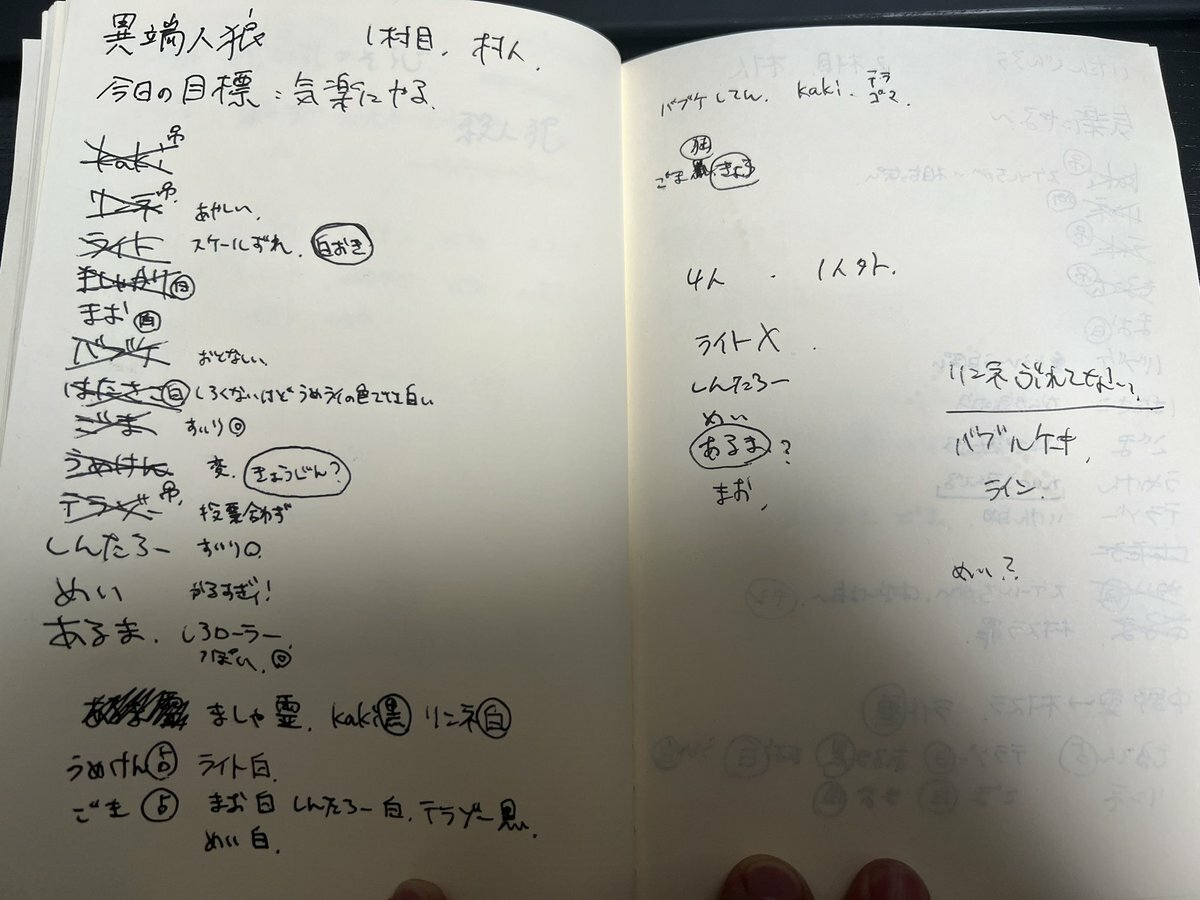 異端人狼 1村目、村人、
今日の目標：気楽にやる
kaki 吊
リンネ 吊 あやしい、
ライト スケールずれ、白おき
ましゃかり 白
まお 白
バブケ おとなしい、
はたさこ 白 しろくないけどうめライの色でては白い
ごま すいり◎
うめけん 変、きょうじん？
テラゾー 吊 投票合わず
しんたろー すいり○
めい かるすぎィ！
あるま、しろローラー
っぽい、◎
ましゃ 霊、kaki 黒 リンネ 白
うめけん 占 ライト白、
ごま 占 まお白 しんたろー白、テラゾー黒、
めい白、
バブケしてん、kaki、テラ
ゴマ、
ごま
4人 ・ 1人外、
ライト X
しんたろー
めい
あるま？
まお、
リンネ
バブルケーキ、
ライン、
めい？